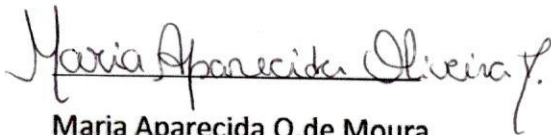 Maria Aparecida Oliveira
Maria Aparecida O de Moura